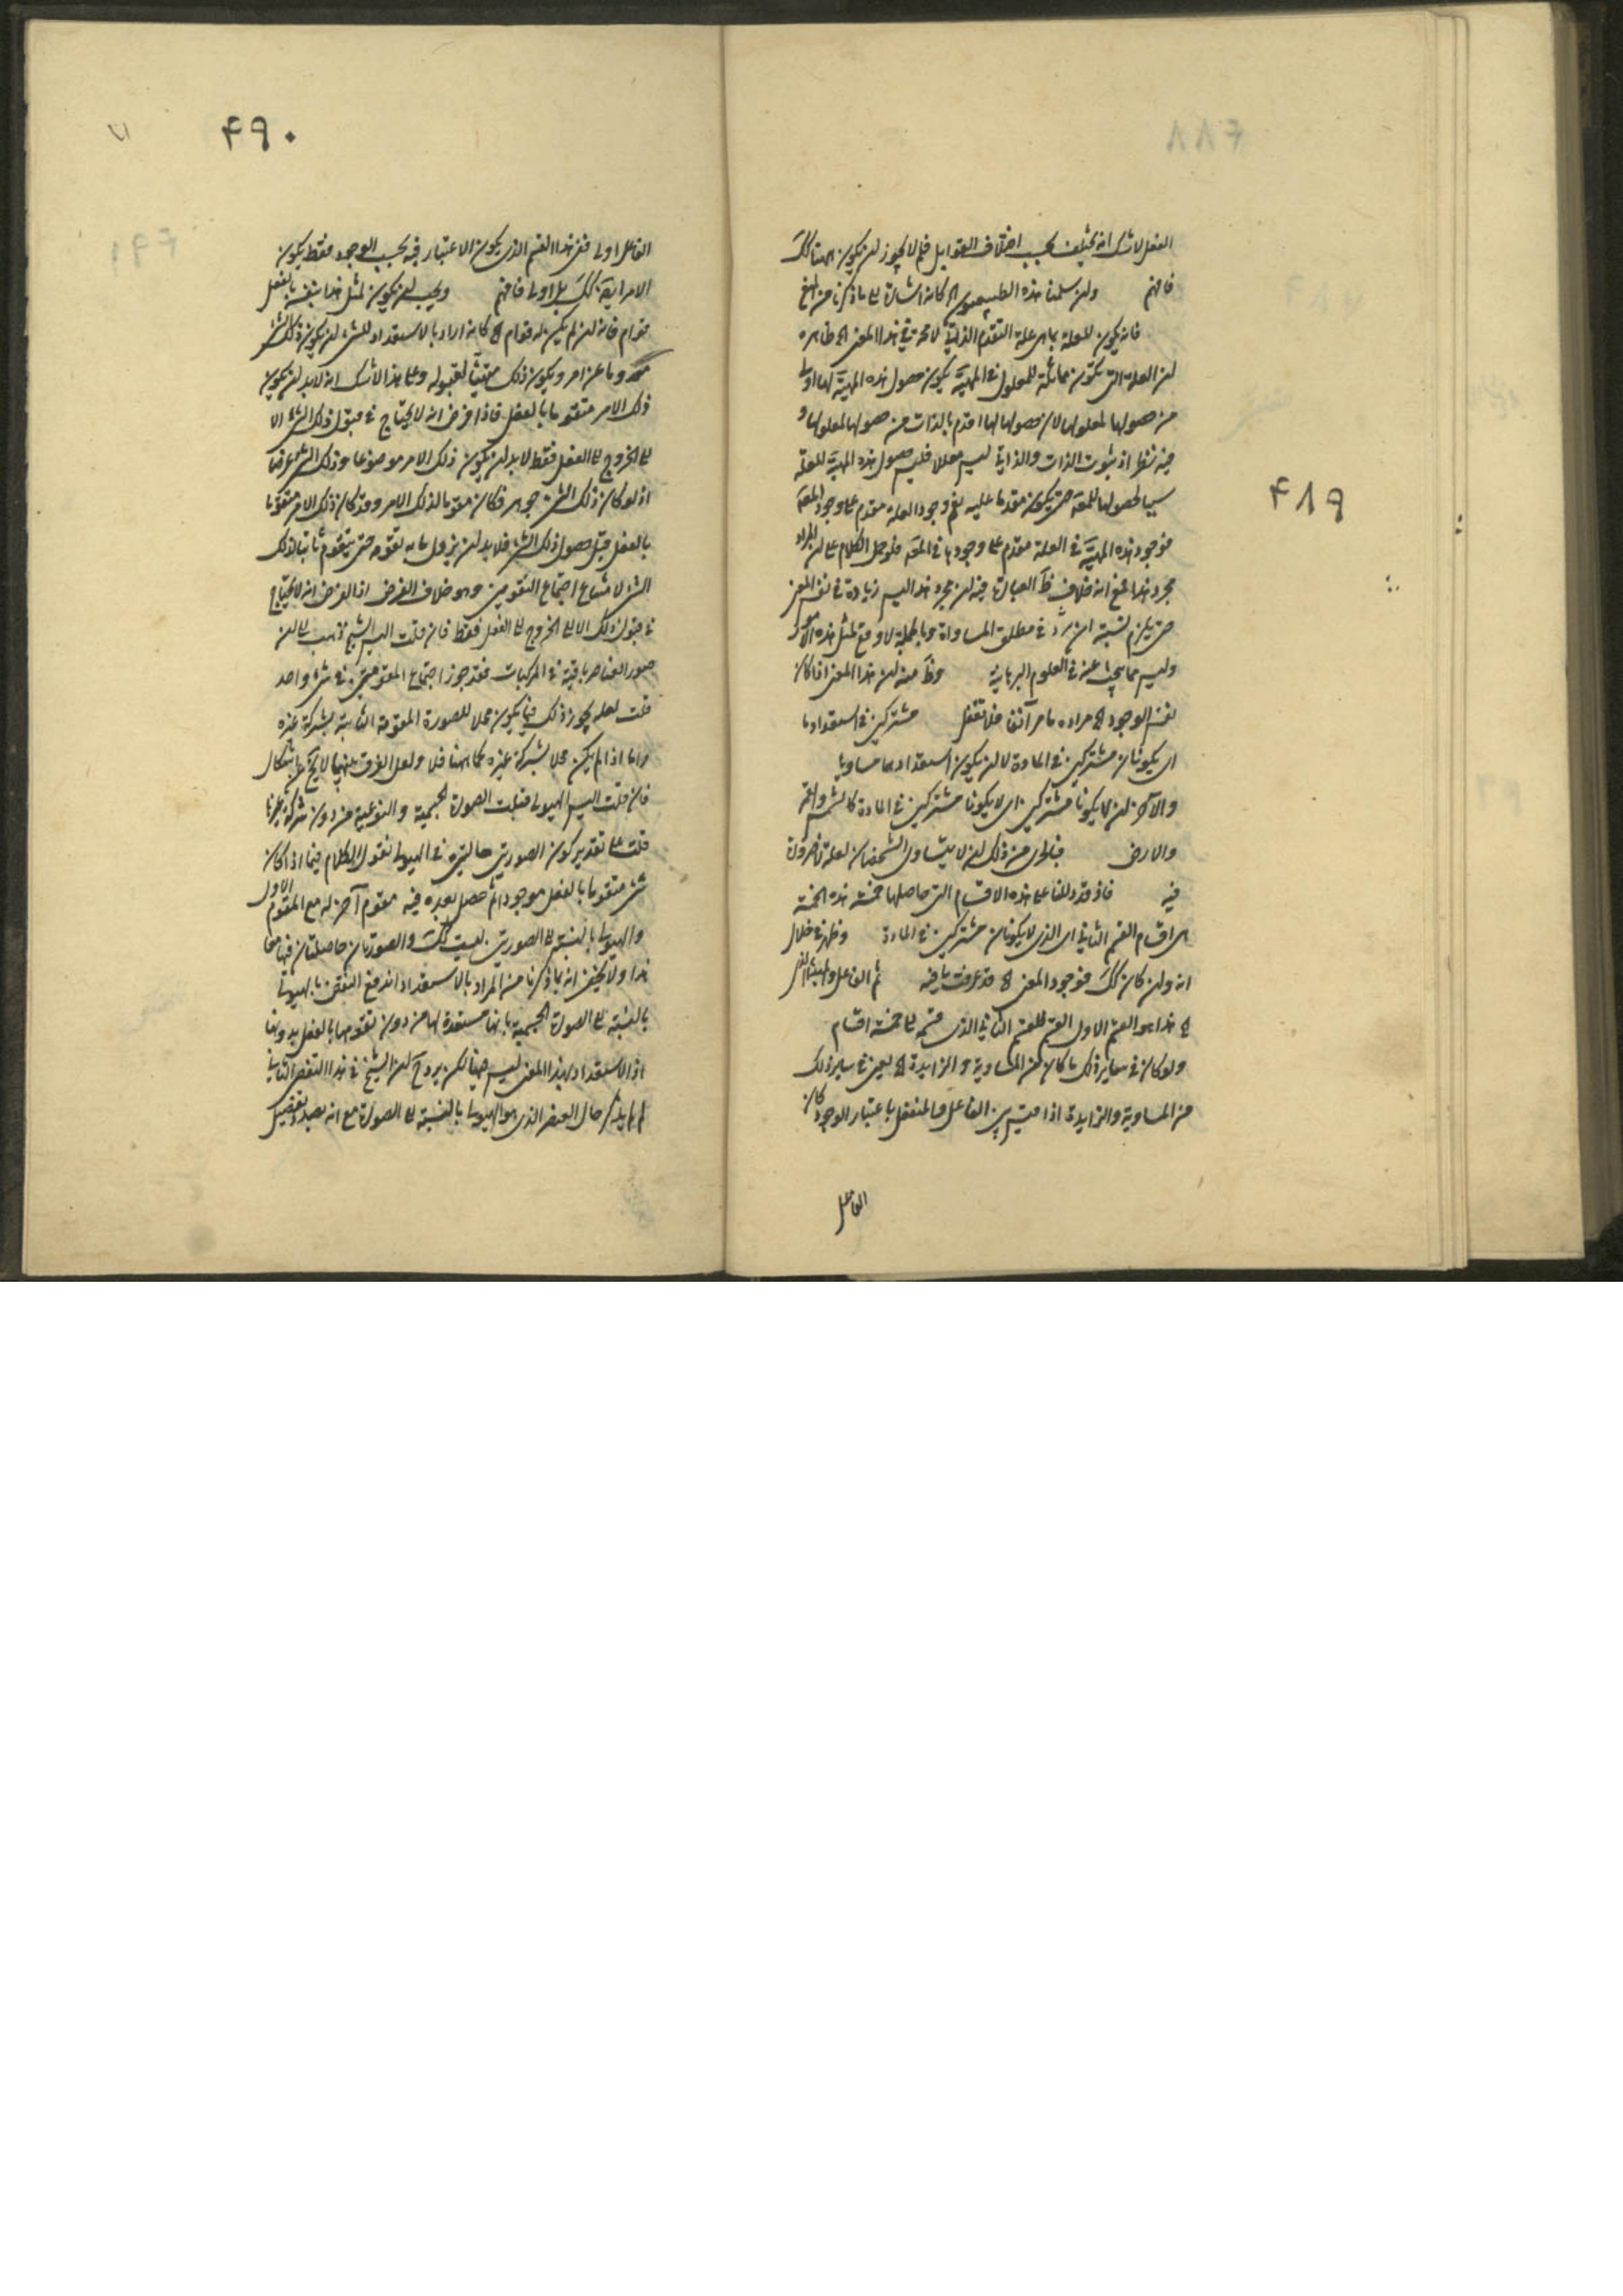 ۴۸۹
الفعل لا شك انه يختلف بحسب اختلاف القوابل فلم لا يجوز ان يكون ههنا كك
فافهم ولئن سلمنا هذه الطبيعيين الخ كانه اشارة الى ما ذكرنا من المنع
فانه يكون للعلة بما هى علة التقدم الذاتى لا محة فى هذا المعنى الخ ظاهره
ان العلة التى تكون مماثلة للمعلول فى المهية يكون حصول هذه المهية لها اولى
من حصولها لمعلولها لان حصولها لها اقدم بالذات من حصولها لمعلولها و
فيه نظر اذ ثبوت الذات والذاتى ليس معللا فليس حصول هذه المهية للعلة
سببا لحصولها للمعة حتى يكون مقدما عليه نعم وجود العلة مقدم على وجود المعة
فوجود هذه المهية فى العلة مقدم على وجودها فى المعة فلو حمل الكلام على ان المراد
مجرد هذا فمع انه خلاف ظ العبارة فيه ان مجرد هذا ليس زيادة فى نفس المعنى
حتى يلزم نسبة امر زيد فى مطلق المساواة وبالجملة لا وقع لمثل هذه الامور
وليس مما يبحث عنه فى العلوم البرهانية وظ منه ان هذا المعنى اذا كان
نفس الوجود الخ مراده ما مر آنفا فلا تغفل مشتركين فى استعداد ما
اى يكونان مشتركين فى المادة لا ان يكون استعدادهما مساويا
والآخر ان لا يكونا مشتركين اى لا يكونا مشتركين فى المادة كالشمس والقمر
والارض فبالحرى من ذلك ان لا يتساوى الشخصان لعله
فيه فاذ قد دللنا على هذه الاقسام التى حاصلها خمسة هذه الخمسة
هى اقسام القسم الثانى اى الذى لا يكونان مشتركين فى المادة وظهر فى خلال
انه وان كان كك فوجود المعنى الخ قد عرفت ما فيه ثم الفاعل والمبدأ الذى
الخ هذا هو القسم الاول القسم للقسم الثانى الذى قسمه الى خمسة اقسام
ولو كان فى ساير ذلك ما كان من المساوية والزايدة الخ يعنى فى ساير ذلك
من المساوية والزايدة اذا قيس بين الفاعل والمنفعل باعتبار الوجود كان
الفاعل
۴۹۰
الفاعل اولى ففى هذا القسم الذى يكون الاعتبار فيه بحسب الوجود فقط يكون
الامر ايضا كك بل اولى فافهم ويجب ان يكون لمثل هذا بنفسه بالفعل
قوام فانه ان لم يكن له قوام الخ كانه اراد بالاستعداد للشئ ان يكون ذلك الشئ
معدوما عن امر ويكون ذلك متهيئا لقبوله وعلى هذا لا شك انه لا بد ان يكون
ذلك الامر متقوما بالفعل فاذا فرض انه لا يحتاج فى قبول ذلك الشئ الا
الى الخروج الى الفعل فقط لا بد ان يكون ذلك الامر موضوعا وذلك الشئ عرضا
اذ لو كان ذلك الشئ جوهرا فكان مقوما لذلك الامر وقد كان ذلك الامر متقوما
بالفعل قبل حصول ذلك الشئ فلا بد ان يزول ما به تقومه حتى يتقوم ثانيا بذلك
الشئ لامتناع اجتماع المقومين وهو خلاف الفرض اذ الفرض انه لا يحتاج
فى قبول ذلك الا الى الخروج الى الفعل فقط فان قلت اليس الشيخ ذهب الى ان
صور العناصر باقية فى المركبات فقد جوز اجتماع المقومين فى شئ واحد
قلت لعله يجوز ذلك فيما يكون محلا للصورة المقومة الثانية بشركة غيره
واما اذا لم يكن محلا بشركة غيره كما ههنا فلا ولعل الفرق بينهما لا يخ عن اشكال
فان قلت اليس الهيولى قبلت الصورة الجسمية والنوعية من دون شركة غيرها
قلت على تقدير كون الصورتين حالتين فى الهيولى نقول الكلام فيما اذا كان
شئ متقوما بالفعل موجودا ثم حصل بعده فيه مقوم آخر له مع المقوم الاول
والهيولى بالنسبة الى الصورتين ليست كك والصورتان حاصلتان فيها معا
هذا ولا يخفى انه بما ذكرنا من المراد بالاستعداد اندفع النقض بالهيولى
بالنسبة الى الصورة الجسمية بانها مستعدة لها من دون تقومها بالفعل بدونها
اذ الاستعداد بهذا المعنى ليس فيها لكن يرد ح ان الشيخ فى هذا النقض الثانى
لم يذكر حال العنصر الذى هو الهيولى بالنسبة الى الصورة مع انه بصدد تفصيل